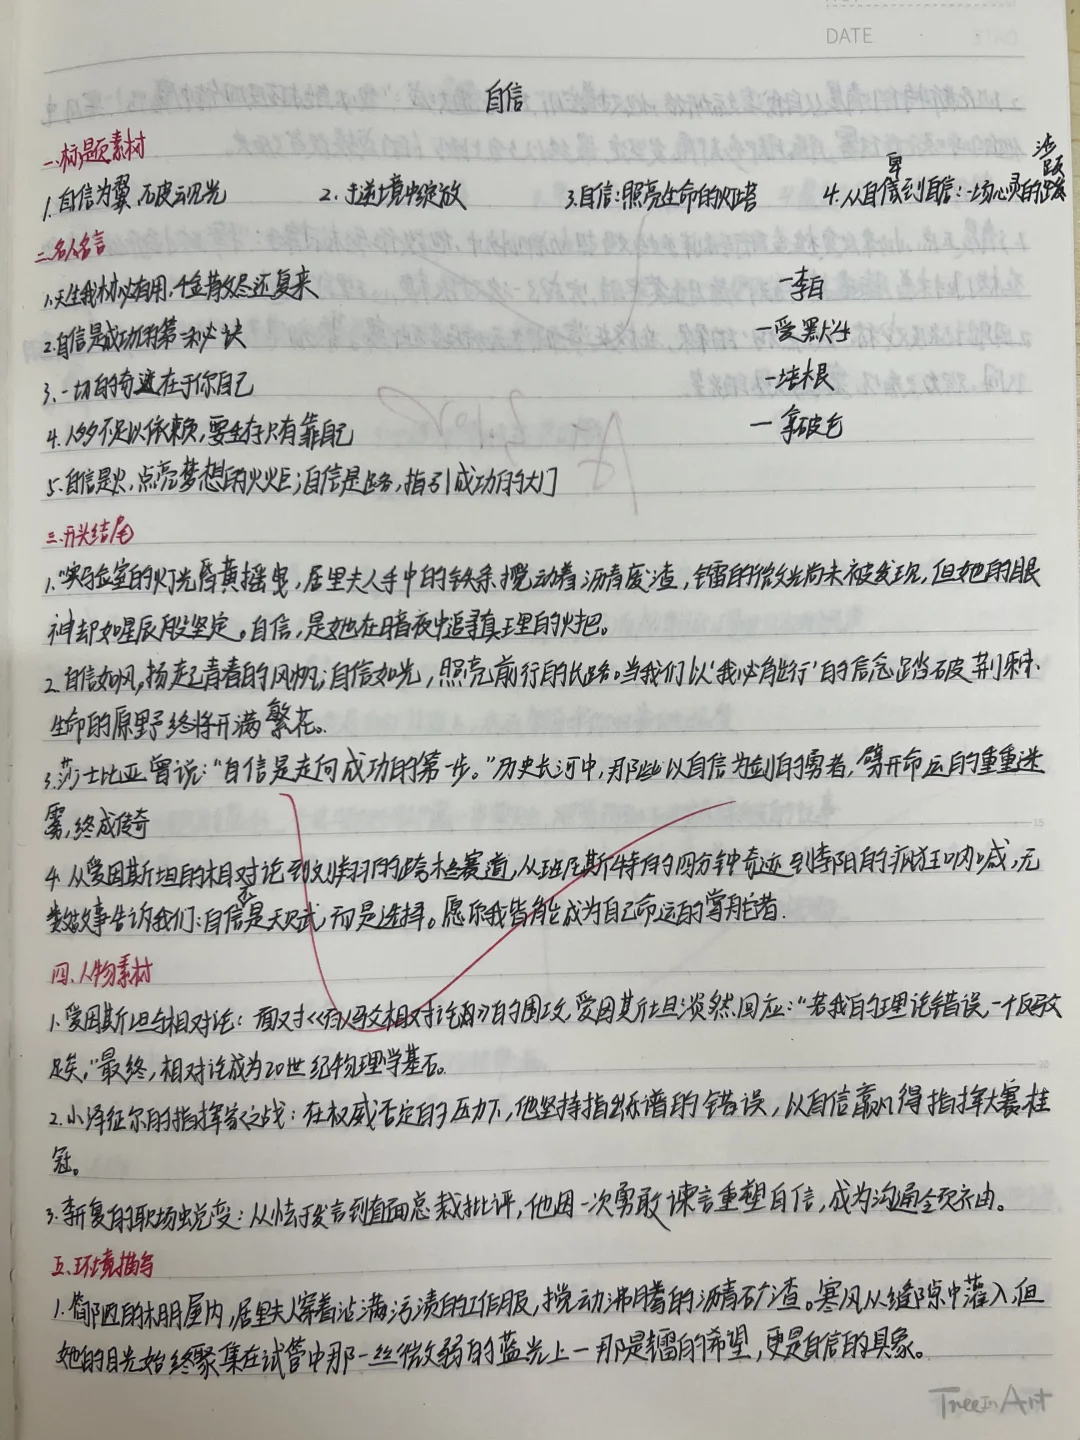 DATE
自信
一.标题素材
1.自信为翼,石破云见光 2.于逆境中绽放 3.自信:照亮生命的灯塔 4.从自卑到自信:一场心灵的跋涉
二.名人名言
1.天生我材必有用,千金散尽还复来 —李白
2.自信是成功的第一秘诀 —爱默生
3.一切的奇迹在于你自己 —培根
4.人多不足以依赖,要生存只有靠自己 —拿破仑
5.自信是火,点亮梦想的火炬;自信是路,指引成功的大门
三.开头结尾
1."实验室的灯光昏黄摇曳,居里夫人手中的铁条搅动着沥青废渣,镭的微光尚未被发现,但她的眼
神却如星辰般坚定。自信,是她在暗夜中追寻真理的火把。
2.自信如风,扬起青春的风帆;自信如光,照亮前行的长路。当我们以'我必能行'的信念踏破荆棘,
生命的原野终将开满繁花。
3.莎士比亚曾说:"自信是走向成功的第一步。"历史长河中,那些以自信为剑的勇者,劈开命运的重重迷
雾,终成传奇
4.从爱因斯坦的相对论到刘翔的跨栏赛道,从班尼斯特的四分钟奇迹到李阳的疯狂呐喊,无
数故事告诉我们:自信不是天赋,而是选择。愿你我皆能成为自己命运的掌舵者.
四.人物素材
1.爱因斯坦与相对论:面对《百人驳相对论》的围攻,爱因斯坦淡然回应:"若我的理论错误,一个反驳
足矣,"最终,相对论成为20世纪物理学基石。
2.小泽征尔的指挥家之战:在权威否定的压力下,他坚持指出乐谱的错误,以自信赢得指挥大赛桂
冠。
3.李开复的职场蜕变:从怯于发言到直面总裁批评,他因一次勇敢谏言重塑自信,成为沟通全球的
五.环境描写
1.简陋的木棚屋内,居里夫人穿着沾满污渍的工作服,搅动沸腾的沥青矿渣。寒风从缝隙中灌入,但
她的目光始终聚集在试管中那一丝微弱的蓝光上—那是镭的希望,更是自信的具象。
Tree In Art